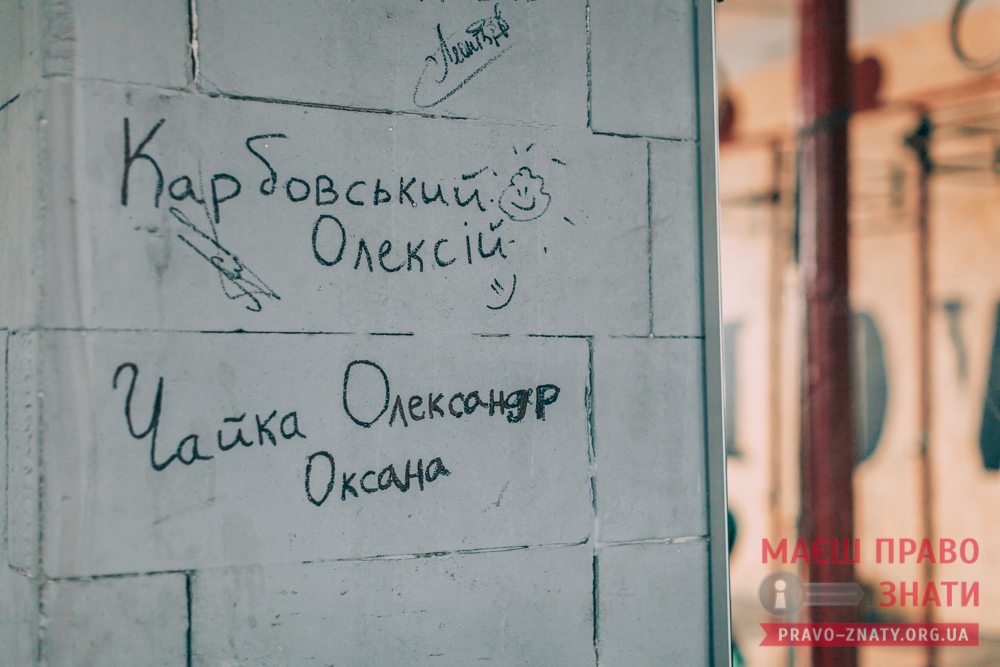 Карбовський
Олексій
Чайка Олександр
Оксана
МАЄШ ПРАВО
ЗНАТИ
PRAVO-ZNATY.ORG.UA